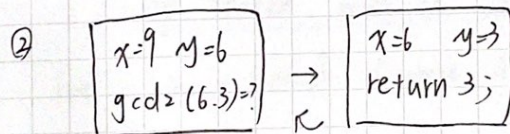 ②
x=9 y=6
gcd2 (6.3)=?
→
x=6 y=3
return 3;